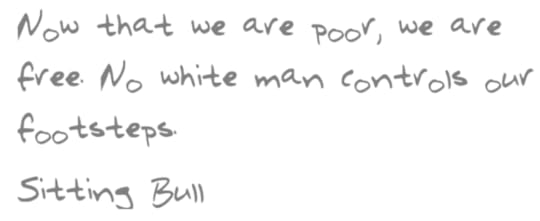 Now that we are poor, we are
free. No white man controls our
footsteps.
Sitting Bull